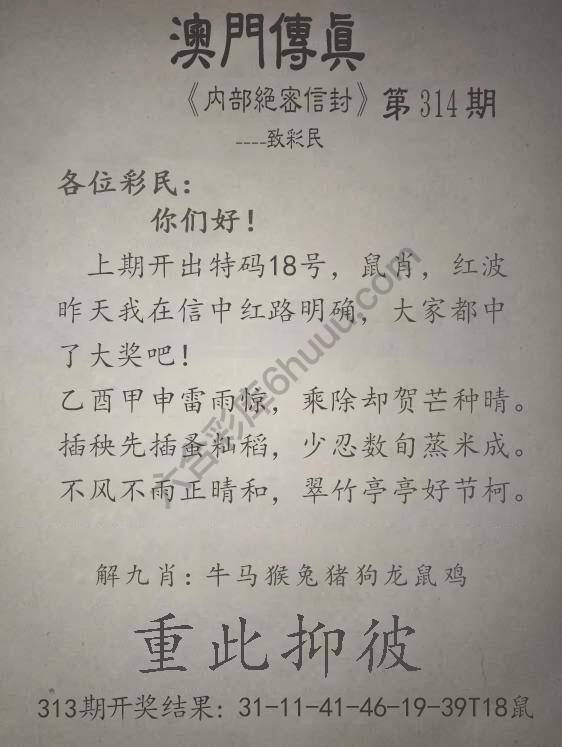 澳門傳眞
《内部絕密信封》第314期
----致彩民
各位彩民：
你们好！
上期开出特码18号，鼠肖，红波
昨天我在信中红路明确，大家都中
了大奖吧！
乙酉甲申雷雨惊，乘除却贺芒种晴。
插秧先插蚤籼稻，少忍数旬蒸米成。
不风不雨正晴和，翠竹亭亭好节柯。
解九肖：牛马猴兔猪狗龙鼠鸡
重此抑彼
313期开奖结果：31-11-41-46-19-39T18鼠
六合彩库6huuu.com